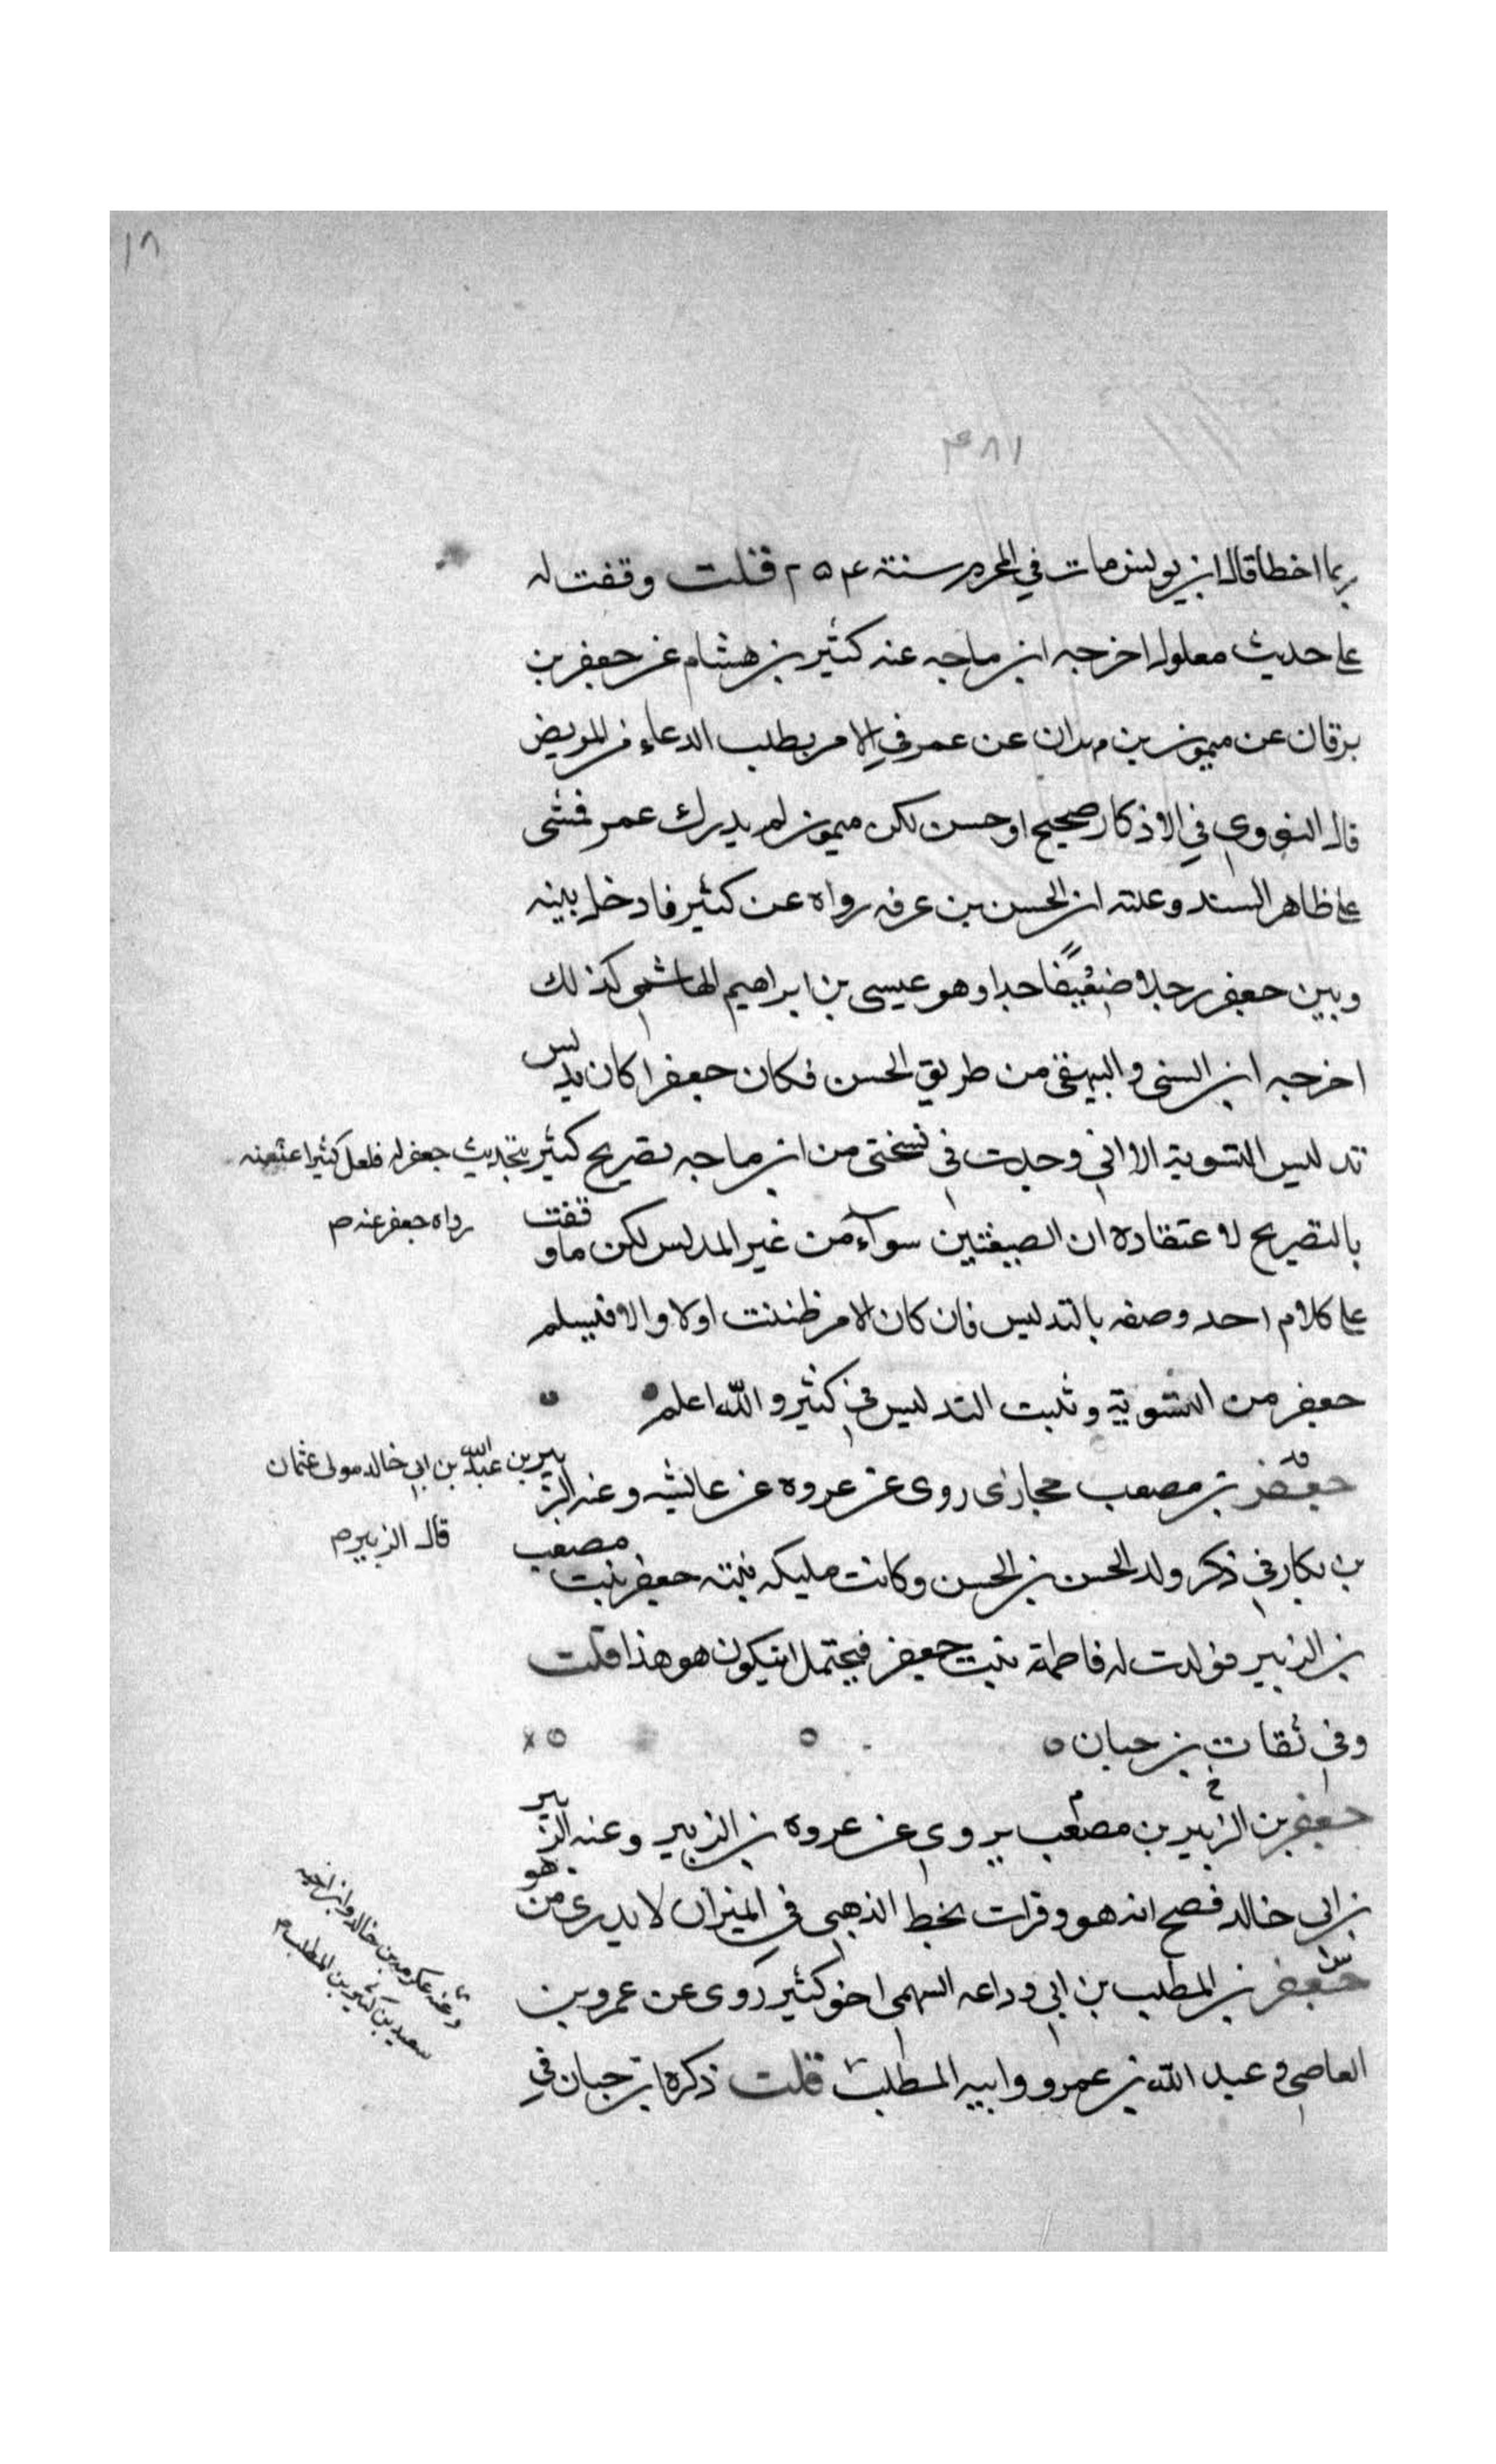 ١٨
٣٨١
ربما اخطا قال ابن يونس مات في المحرم سنة ٢٥٤ قلت وقفت له
على حديث معلول اخرجه ابن ماجه عنه كثير بن هشام عن جعفر بن
برقان عن ميمون بن مهران عن عمر في الامر بطلب الدعاء من المريض
قال النووي في الاذكار صحيح او حسن لكن ميمون لم يدرك عمر فمشى
على ظاهر السند وعلته ان الحسن بن عرفه رواه عن كثير فادخل بينه
وبين جعفر رجلا ضعيفا جدا وهو عيسى بن ابراهيم الهاشمي كذلك
اخرجه ابن السني والبيهقي من طريق الحسن فكان جعفرا كان يدلس
تدليس التسوية الا اني وجدت في نسختي من ابن ماجه تصريح كثير بتحديث جعفر له فلعل كثيرا عنعنه
رواه جعفر عنه م
بالتصريح لاعتقاده ان الصيغتين سوآء من غير المدلس لكن ما وقفت
على كلام احد وصفه بالتدليس فان كان الامر ظننت اولا والا فيسلم
جعفر من التسوية وثبت التدليس في كثير والله اعلم
جعفر بن مصعب حجازي روى عن عروه عن عائشه وعنه الزبير بن عبد الله بن ابي خالد مولى عثمان
قال الزبير م
بن بكار في ذكر ولد الحسن بن الحسن وكانت مليكه بنته جعفر بنت مصعب
بن الزبير فولدت له فاطمة بنت جعفر فيحتمل ان يكون هو هذا قلت
وفي ثقات بن حبان
جعفر بن الزبير بن مصعب يروي عن عروه بن الزبير وعنه الزبير
بن ابي خالد فصح انه هو وقرات بخط الذهبي في الميزان لا يدرى من هو
جعفر بن المطلب بن ابي وداعه السهمي اخو كثير روى عن عمرو بن
وعنه عكرمه بن خالد وابن اخيه
سعيد بن كثير بن المطلب م
العاصي وعبد الله بن عمرو وابيه المطلب قلت ذكره ابن حبان في